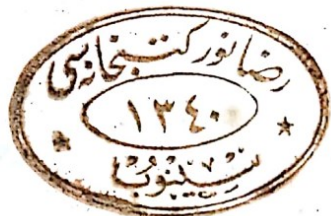 رضا نور كتبخانه‌سی
١٣٤٠
سينوب